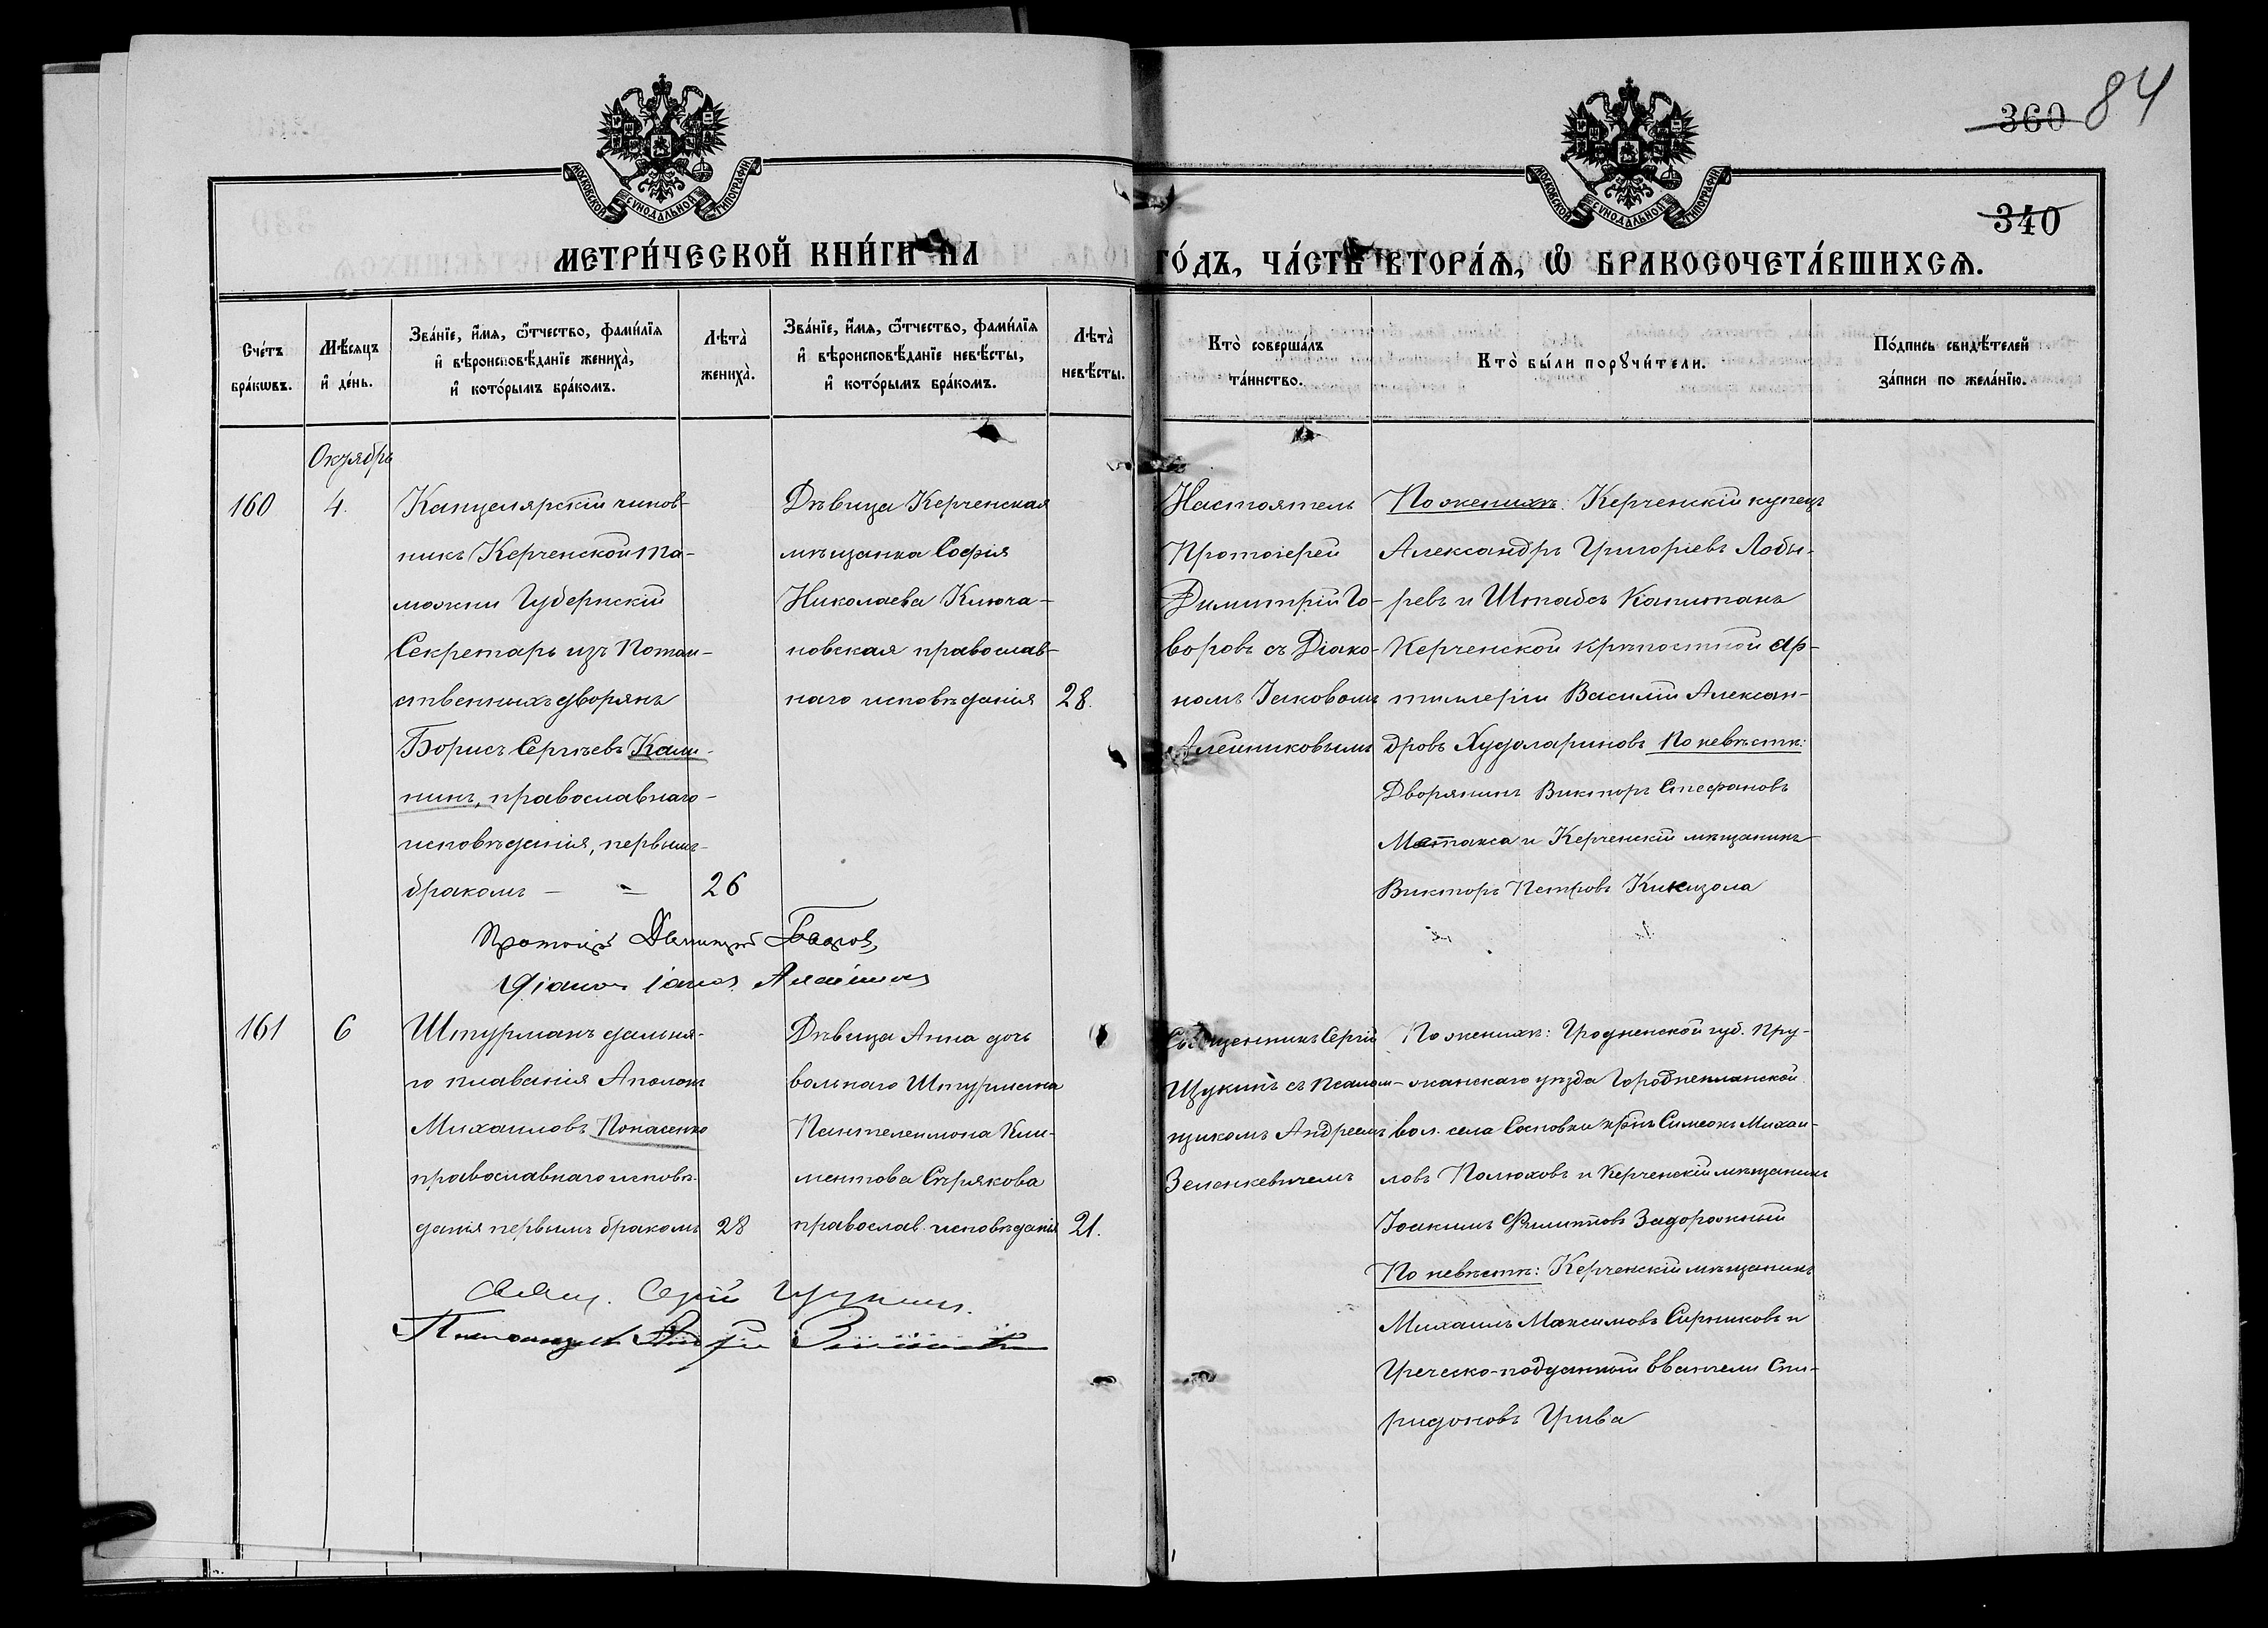 84
360
340
МОСКОВСКОЙ СѴНОДАЛЬНОЙ ТИПОГРАФІИ
МОСКОВСКОЙ СѴНОДАЛЬНОЙ ТИПОГРАФІИ
МЕТРИ́ЧЕСКОЙ КНИ́ГИ НА
ГО́ДЪ, ЧА́СТЬ ВТОРА́Ѧ, Ѡ БРАКОСОЧЕТА́ВШИХСѦ.
Сче́тъ
бра́кѡвъ.
Мѣ́сяцъ
и де́нь.
Зва́нїе, и́мѧ, ѻ́тчество, фами́лїѧ
и вѣроисповѣ́данїе жениха̀,
и кото́рымъ бра́комъ.
Лѣта̀
жениха̀.
Зва́нїе, и́мѧ, ѻ́тчество, фами́лїѧ
и вѣроисповѣ́данїе невѣ́сты,
и кото́рымъ бра́комъ.
Лѣта̀
невѣ́сты.
Кто̀ соверша́лъ
та́инство.
Кто̀ бы́ли порꙋчи́тели.
По́дпись свидѣ́телей
за́писи по жела́нїю.
Октябрь
160
4.
Канцелярскій чинов-
никъ Керченской та-
можни Губернскій
Секретарь изъ Потом-
ственныхъ дворянъ
Борисъ Сергѣевъ Кали-
нинъ, православнаго
исповѣданія, первымъ
бракомъ
26
Дѣвица Керченская
мѣщанка Софія
Николаева Ключа-
новская православ-
наго исповѣданія
28.
Настоятель
Протоіерей
Димитрій Го-
воровъ съ Діако-
номъ Іаковомъ
Алейниковымъ
По женихѣ: Керченскій купецъ
Александръ Григорьевъ Лобы-
ревъ и Штабсъ Капитанъ
Керченской крѣпостной ар-
тиллеріи Василій Алексан-
дровъ Худолариновъ По невѣстѣ:
Дворянинъ Викторъ Стефановъ
Метакса и Керченскій мѣщанинъ
Викторъ Петровъ Кикизола
Протоіер Димитрій Говоров
Діакон Іаков Алейников
161
6
Штурманъ дальня-
го плаванія Аполонъ
Михаиловъ Понасенко
православнаго исповѣ-
данія первымъ бракомъ
28
Дѣвица Анна дочь
вольнаго Штурмана
Пантелеимона Кли-
ментова Сѣрякова
православ. исповѣданія
21.
Священникъ Сергій
Щукинъ съ псалом-
щикомъ Андреемъ
Зеленкевичемъ
По женихѣ: Гродненской губ. Пру-
жанскаго уѣзда
вол. села Сосновки крѣнъ Симеонъ Михаи-
ловъ Полюховъ и Керченскій мѣщанинъ
Іоакимъ Филиповъ Задорожный
По невѣстѣ: Керченскій мѣщанинъ
Михаилъ Максимовъ Сирниковъ и
Греческо-подданный Евангели Спи-
ридоновъ Грива
Свящ. Сергій Щукин.
Псаломщик Андрей